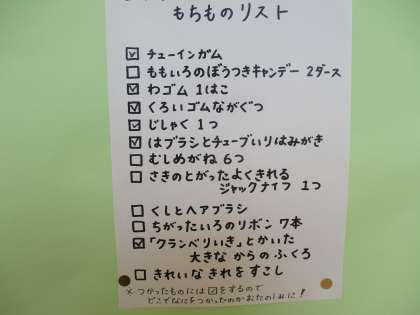 もちものリスト
☑ チューインガム
☐ ももいろのぼうつきキャンデー 2ダース
☑ わゴム 1はこ
☑ くろいゴムながぐつ
☑ じしゃく 1つ
☑ はブラシとチューブいりはみがき
☐ むしめがね 6つ
☐ さきのとがったよくきれる
ジャックナイフ 1つ
☐ くしとヘアブラシ
☐ ちがったいろのリボン 7本
☑ 「クランベリいき」とかいた
大きな からの ふくろ
☐ きれいな きれを すこし
※ つかったものには☑をするので
どこでなにをつかったのかおたのしみに!